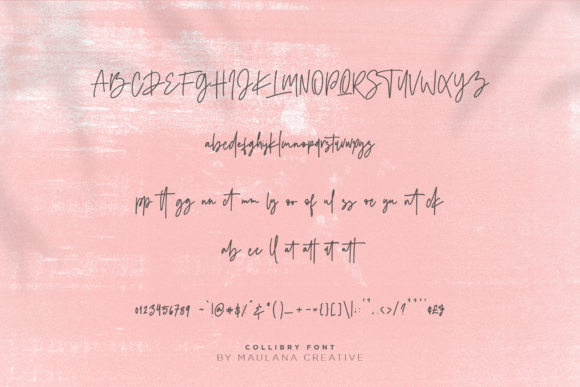 ABCDEFGHIJKLMNOPQRSTUVWXYZ
abcdefghijklmnopqrstuvwxyz
pp tt gg nn ct mm ly or of ul ss oe yu at ck
ab ee ll at att
0123456789 ~`!@#$/^&*()_+-={}[]\|:;'",.<>/?
COLLIBRY FONT
BY MAULANA CREATIVE